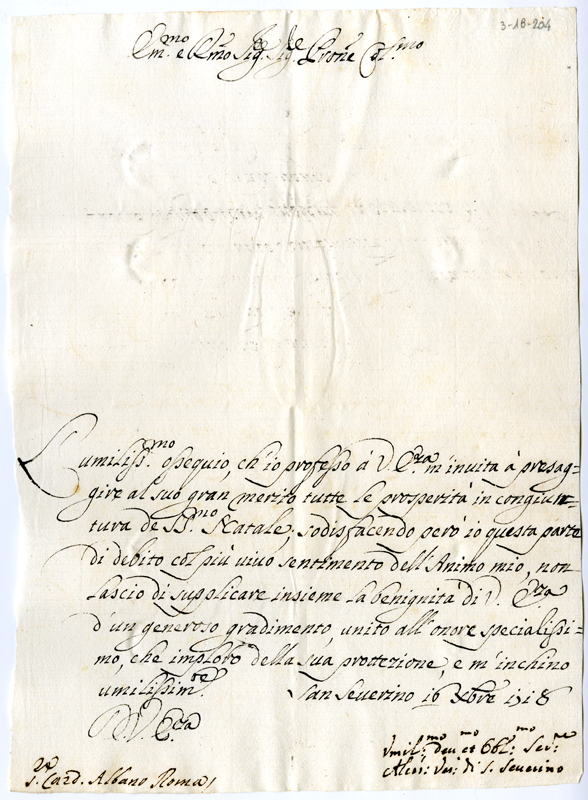 3-18-204
Em.mo e Rmo Sig.r Sig.r Prone Col.mo
L'umiliss.mo ossequio, ch'io professo à V. Eza m'invita à presag=
gire al suo gran merito tutte le prosperità in congiun=
tura de SS.mo Natale; sodisfacendo però io questa parte
di debito col più vivo sentimento dell'Animo mio, non
lascio di supplicare insieme la benignità di V. Eza
d'un generoso gradimento, unito all'onore specialissi=
mo, che imploro della sua protezione, e m'inchino
umilissim.te San Severino 16 Xbre 1718
D V. Eza
S. Card. Albano Roma
Umil.mo deu.mo et Obl.mo Ser.re
Aless: Ves: di S. Severino